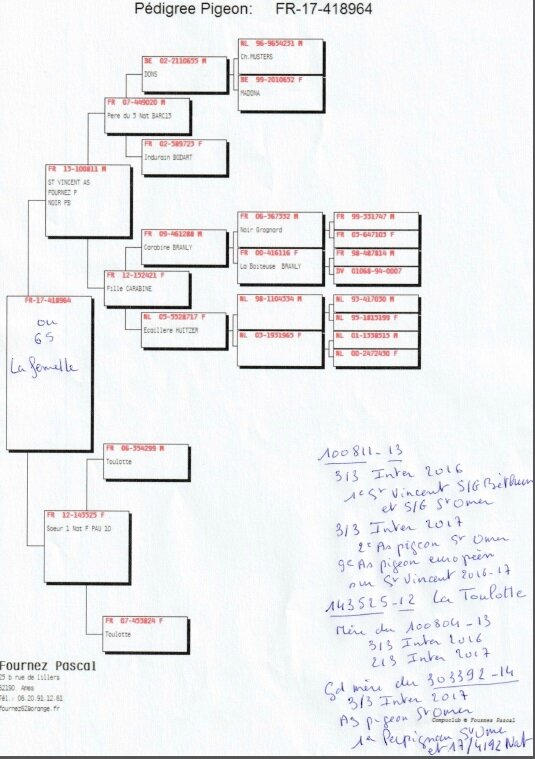 Pédigree Pigeon: FR-17-418964
NL 96-9654231 M
Ch.MUSTERS
BE 02-2110655 M
DONS
BE 99-2010652 F
MADONA
FR 07-449020 M
Pere du 3 Nat BARC13
FR 02-589723 F
Indurain BODART
FR 13-100811 M
ST VINCENT AS
FOURNEZ P
NOIR PB
FR 06-367332 M
Noir Grognard
FR 99-331747 M
FR 03-647103 F
FR 09-461288 M
Carabine BRANLY
FR 00-416116 F
La Boiteuse BRANLY
FR 98-487814 M
DV 01068-94-0007
FR 12-152421 F
Fille CARABINE
NL 98-1104334 M
NL 93-417030 M
NL 95-1815199 F
NL 05-5528717 F
Ecaillere HUITZER
NL 03-1931965 F
NL 01-1558515 M
NL 00-2472430 F
FR-17-418964
ou
65
La femelle
FR 06-354299 M
Toulotte
FR 12-143525 F
Soeur 1 Nat F PAU 10
FR 07-455824 F
Toulotte
100811-13
3/3 Inter 2016
1e St Vincent S/G Béthune
et S/G St Omer
3/3 Inter 2017
2e As pigeon St Omer
9e As pigeon européen
sur St Vincent 2016-17
143525-12 La Toulotte
Mère du 100804-13
3/3 Inter 2016
2/3 Inter 2017
Gd mère du 303392-14
3/3 Inter 2017
As pigeon St Omer
1er Perpignan St Omer
et 17/4192 Nat
Compuclub © Fournez Pascal
Fournez Pascal
25 b rue de Lillers
62190 Ames
Tél.: 06.20.91.12.61
fournez62@orange.fr